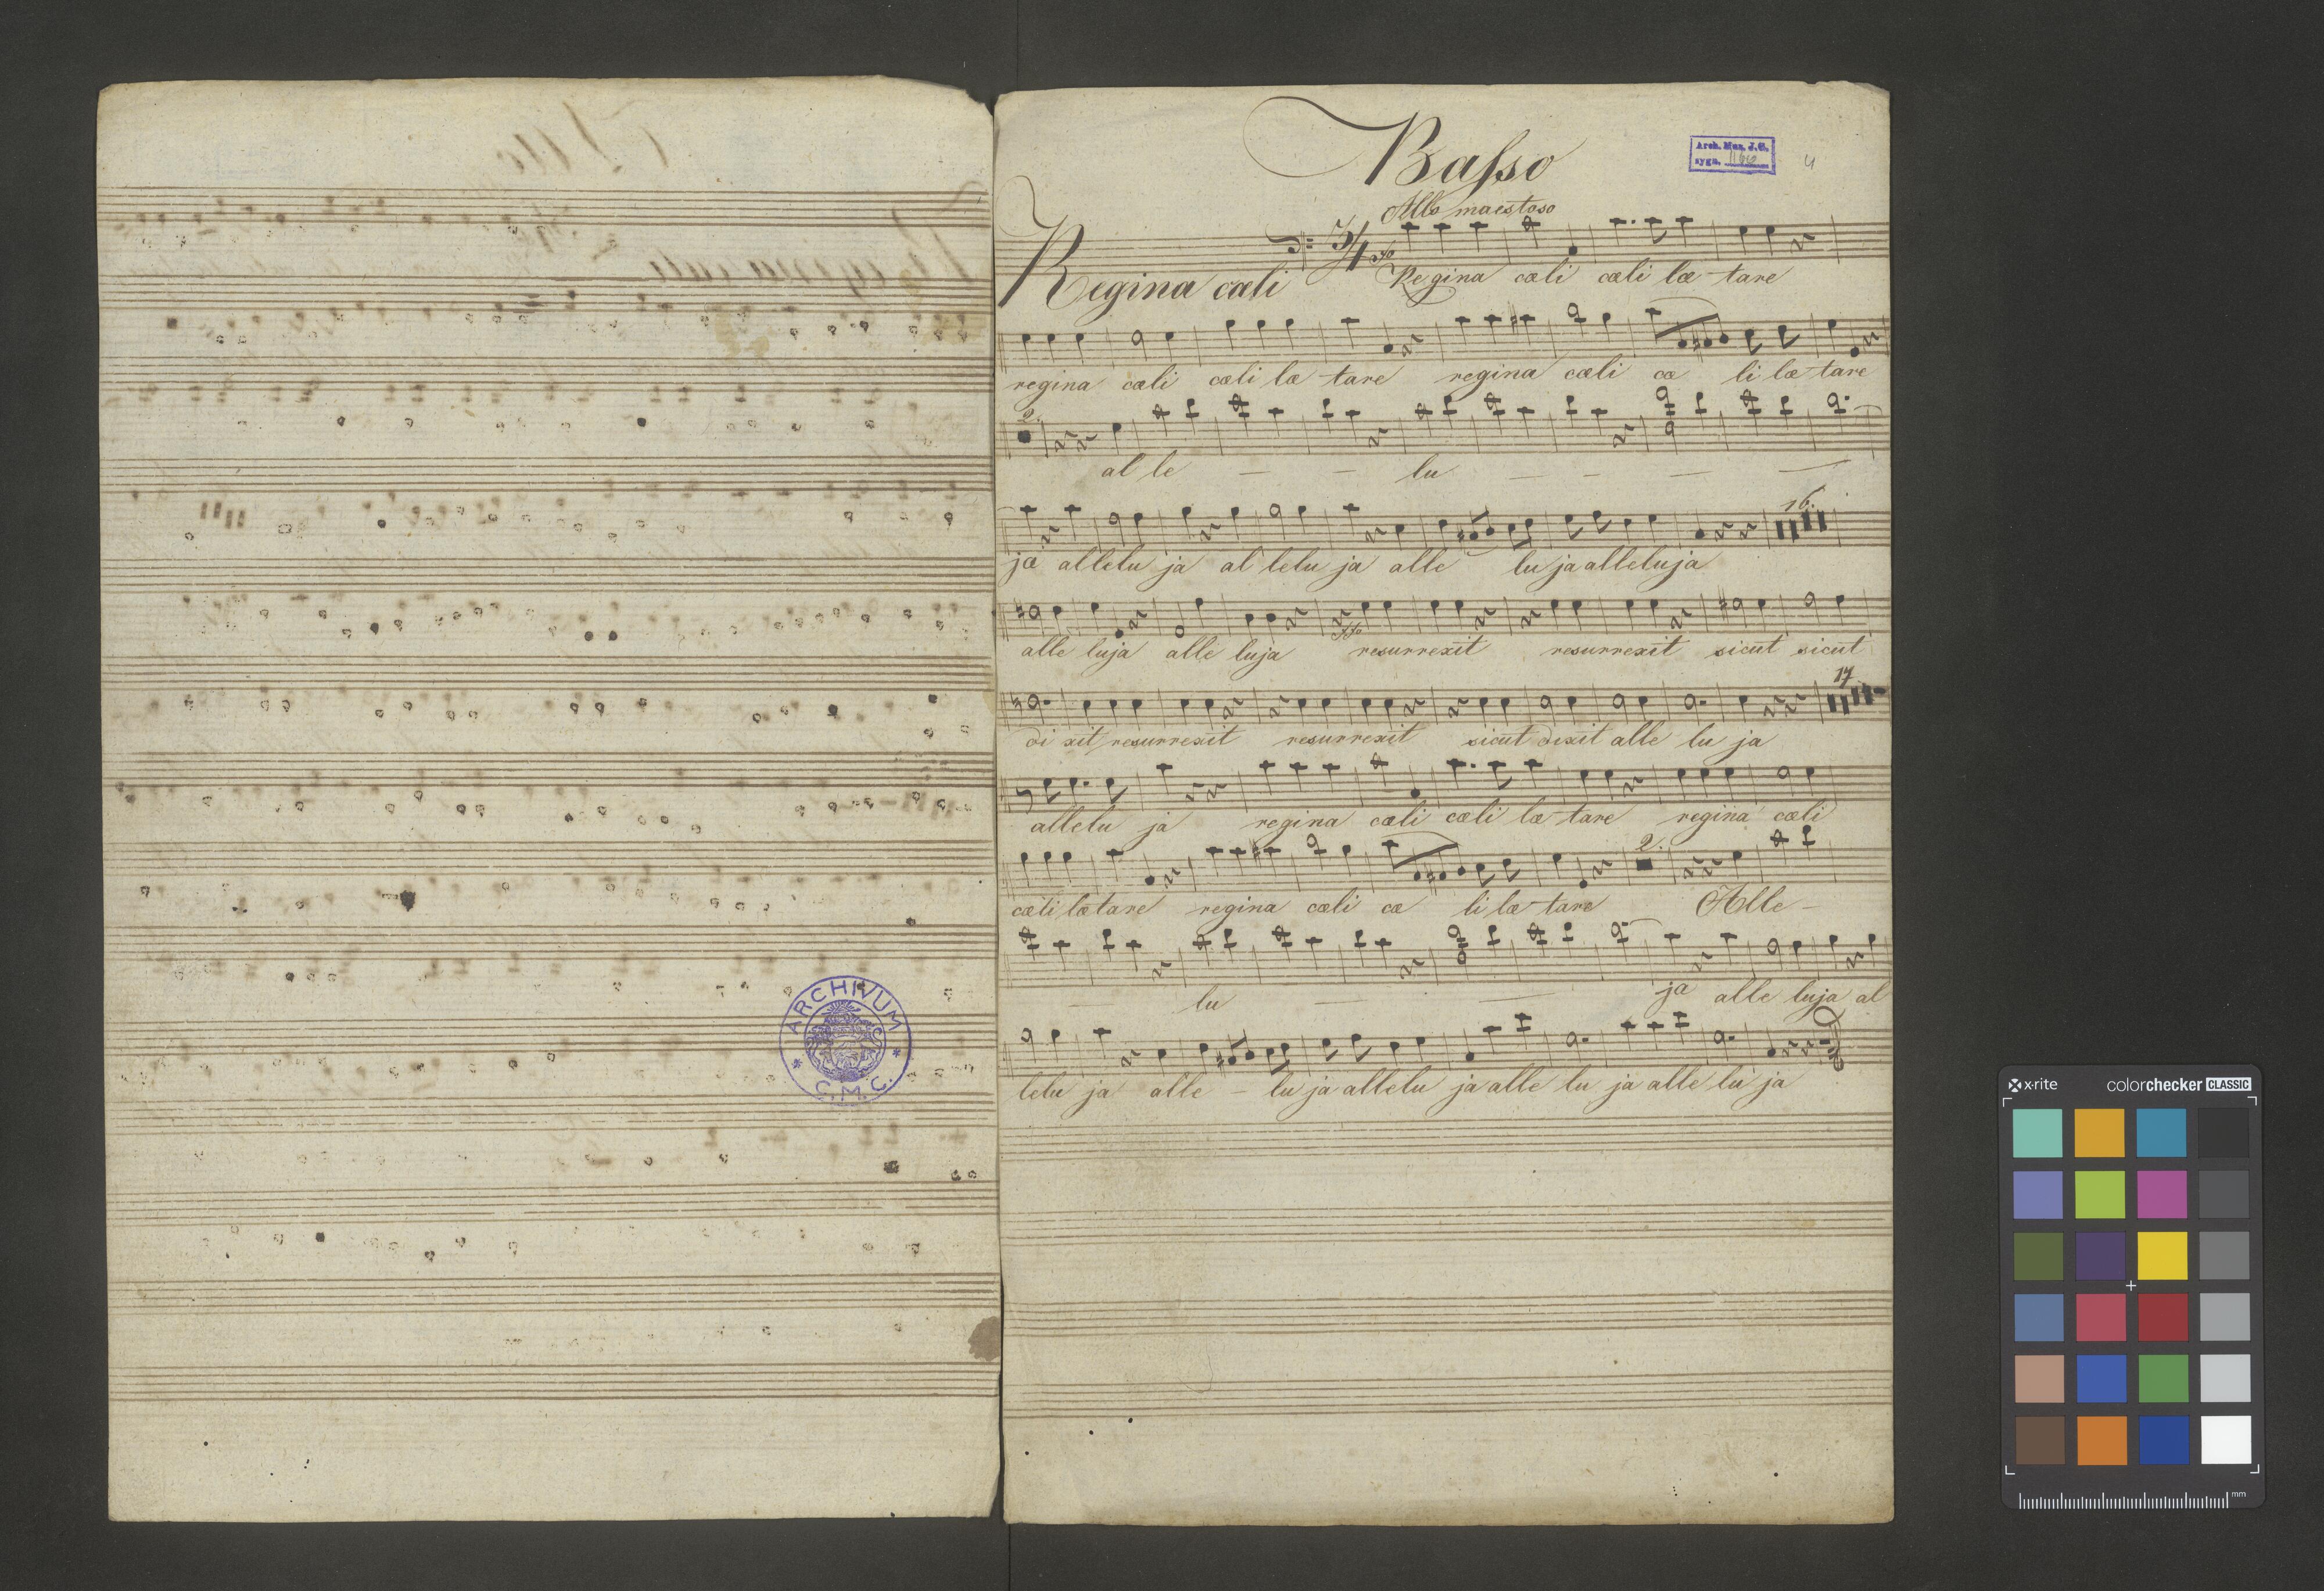 Baſso
Arch. Muz. J.G.
sygn. 1166
4
Allo maestoso
3/4
Regina cœli
Regina cœli cœli læ-tare
regina cœli cœli læ tare regina cœli cœ li læ-tare
2.
al le — — lu — — — —
16.
ja allelu ja al lelu ja alle lu ja alleluja
alle luja alle luja resurrexit resurrexit sicut sicut
17
di xit resurrexit resurrexit sicut dixit alle lu ja
allelu ja regina cœli cœli læ-tare regina cœli
2.
cœli lætare regina cœli cœ li læ-tare Alle-
— lu — — ja alle luja al
lelu ja alle - lu ja allelu ja alle lu ja alle lu ja
ARCHIVUM
* C.M.C. *
x·rite colorchecker CLASSIC
mm